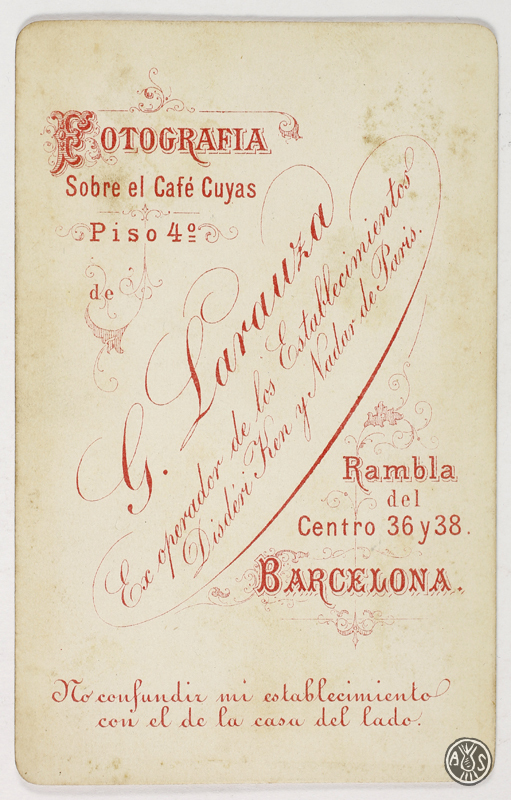 FOTOGRAFIA
Sobre el Café Cuyas
Piso 4º
de
G. Larauza
Ex operador de los Establecimientos
Disdéri Ken y Nadar de Paris.
Rambla
del
Centro 36 y 38.
BARCELONA.
No confundir mi establecimiento
con el de la casa del lado.
A S